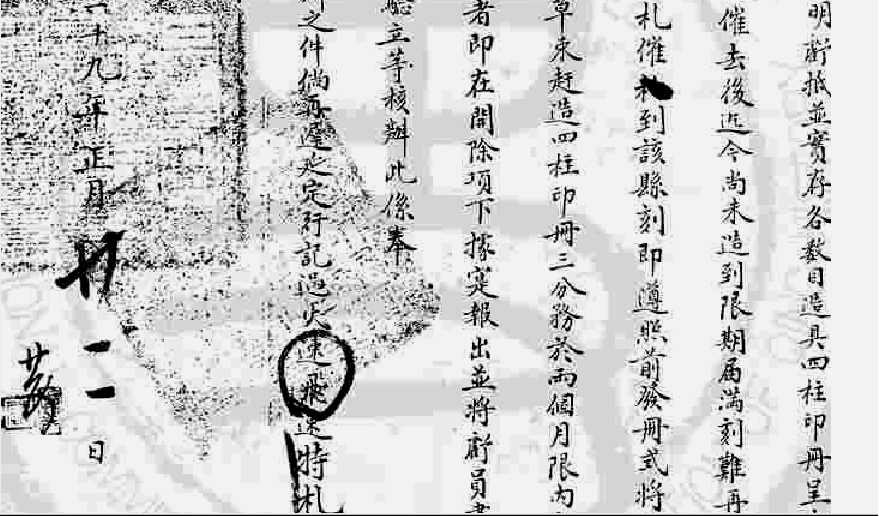 明虧抵並實存各數目造具四柱印冊呈
催去後迄今尚未造到限期屆滿刻難再
札催札到該縣刻即遵照前發冊式將
草束赶造四柱印冊三分務於兩個月限內
者即在開除項下據寔報出並將虧員
聽立等核辦此係奉
之件倘再遲延定行記過火速飛速特札
十九年正月廿二日